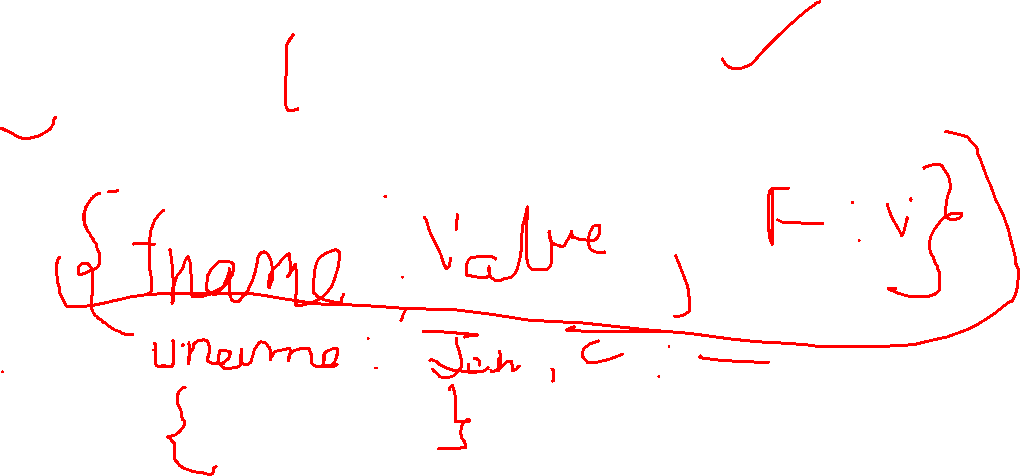 [
{ fname : Value , F : v }
uname : Jan , c :
{ }